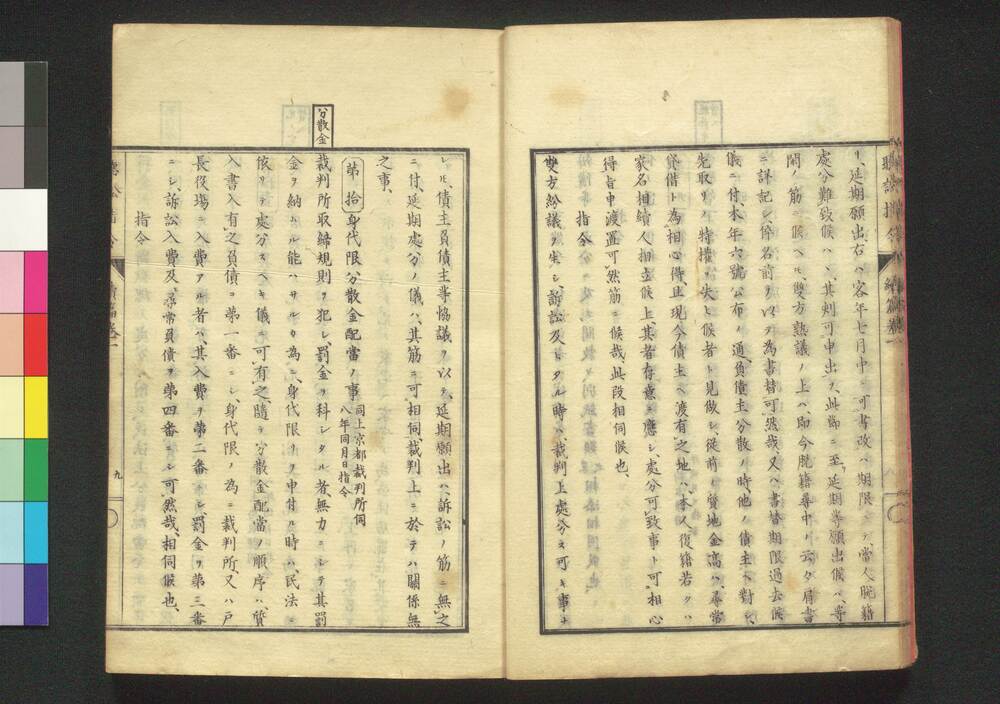 リ、延期願出右ハ、客年七月中ニ可書改ハ期限ニテ、當人脱籍
處分難致候ハヽ、其剋可申出ヲ、此節ニ至、延期等願出候ハ、等
閒ノ筋ニ候ヘ𪜈、雙方熟議ノ上ハ、即今脱籍尋中ノ云々肩書
ニ詳記シ、伜名前ヲ以テ為書替可然哉、又ハ書替期限過去候
儀ニ付、本年六號公布ノ通、負債主分散ノ時、他ノ債主ニ對シ、
先取リノ特權ヲ失ト候者ト見做シ、從前ノ質地金高ハ、尋常
貸借ト為相心得、且現今債主ヘ渡有之地ハ、本人復籍若クハ
家名相續人相立候上、其者存意ニ應シ、處分可致事ト可相心
得旨申渡置可然筋ニ候哉、此段相伺候也、
指令
雙方紛議ヲ生シ、訴訟ニ及ヒタル時ハ、裁判上處分ス可キ事ナ
レ𪜈、債主負債主等協議ヲ以テ、延期願出ハ、訴訟ノ筋ニ無之
ニ付、延期處分ノ儀ハ、其筋ニ可相伺、裁判上ニ於テハ關係無
之事、
分散金
第拾 身代限分散金配當ノ事 同上京都裁判所伺
八年同月日指令
裁判所取締規則ヲ犯シ、罰金ヲ科シタル者、無力ニシテ其罰
金ヲ納ムル能ハサルカ為ニ、身代限リヲ申付ル時ハ、民法ニ
依リテ處分スヘキ儀ニ可有之、隨テ分散金配當ノ順序ハ、質
入書入有之負債ヲ第一番ニシ、身代限ノ為ニ裁判所、又ハ戸
長役場ニ入費アル者ハ、其入費ヲ第二番ニシ、罰金ヲ第三番
ニシ、訴訟入費及ヒ尋常負債ヲ第四番ニシ可然哉、相伺候也、
指令
九